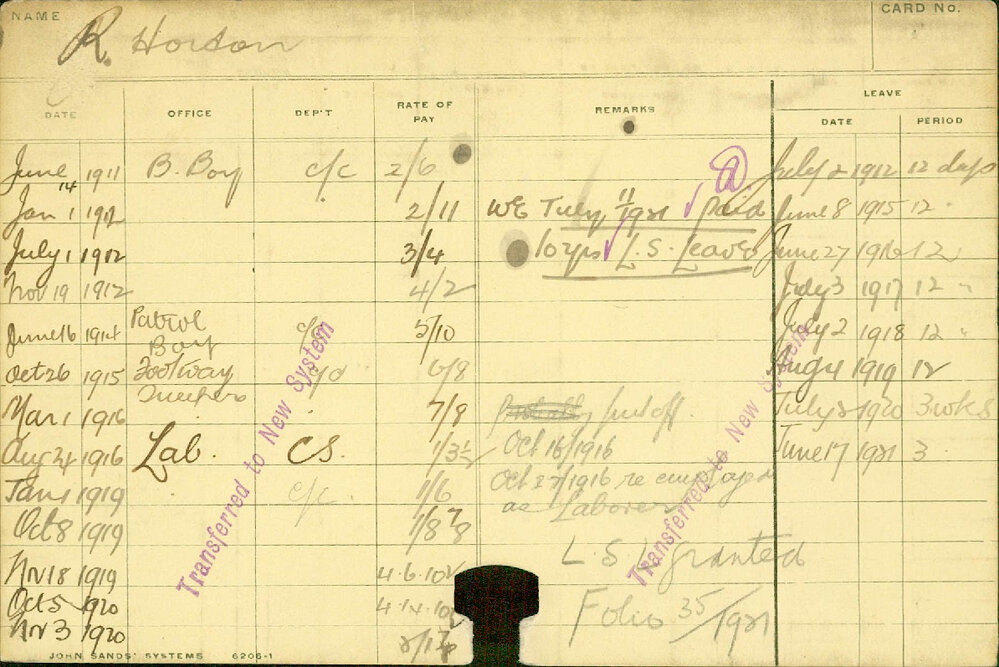 NAME
CARD No.
R. Horton
DATE OFFICE DEP'T RATE OF PAY REMARKS LEAVE
DATE PERIOD
June 1911 B. Boy c/c 2/6 July 2 1912 12 days
14
Jan 1 1912 2/11 WE July 11/1921 paid June 8 1915 12 "
July 1 1912 3/4 10 yrs L.S. Leave June 27 1916 12 "
Nov 19 1912 4/2 July 3 1917 12 "
June 16 1914 Patrol Boy c/c 5/10 July 2 1918 12 "
Oct 26 1915 Footway 6/8 Aug 4 1919 12
Mar 1 1916 7/8 put off. July 2 1920 3 wks
Aug 24 1916 Lab. CS. 1/3½ Oct 16/1916 June 17 1921 3 "
Jan 1 1919 c/c. 1/6 Oct 27/1916 re employed
as Laborer
Oct 8 1919 1/8 7/8
L S L granted
Nov 18 1919 4.6.10½
Oct 5 1920 4.14.10½ Folio 35/1921
Nov 3 1920
Transferred to New System
Transferred to New System
JOHN SANDS' SYSTEMS 6206-1